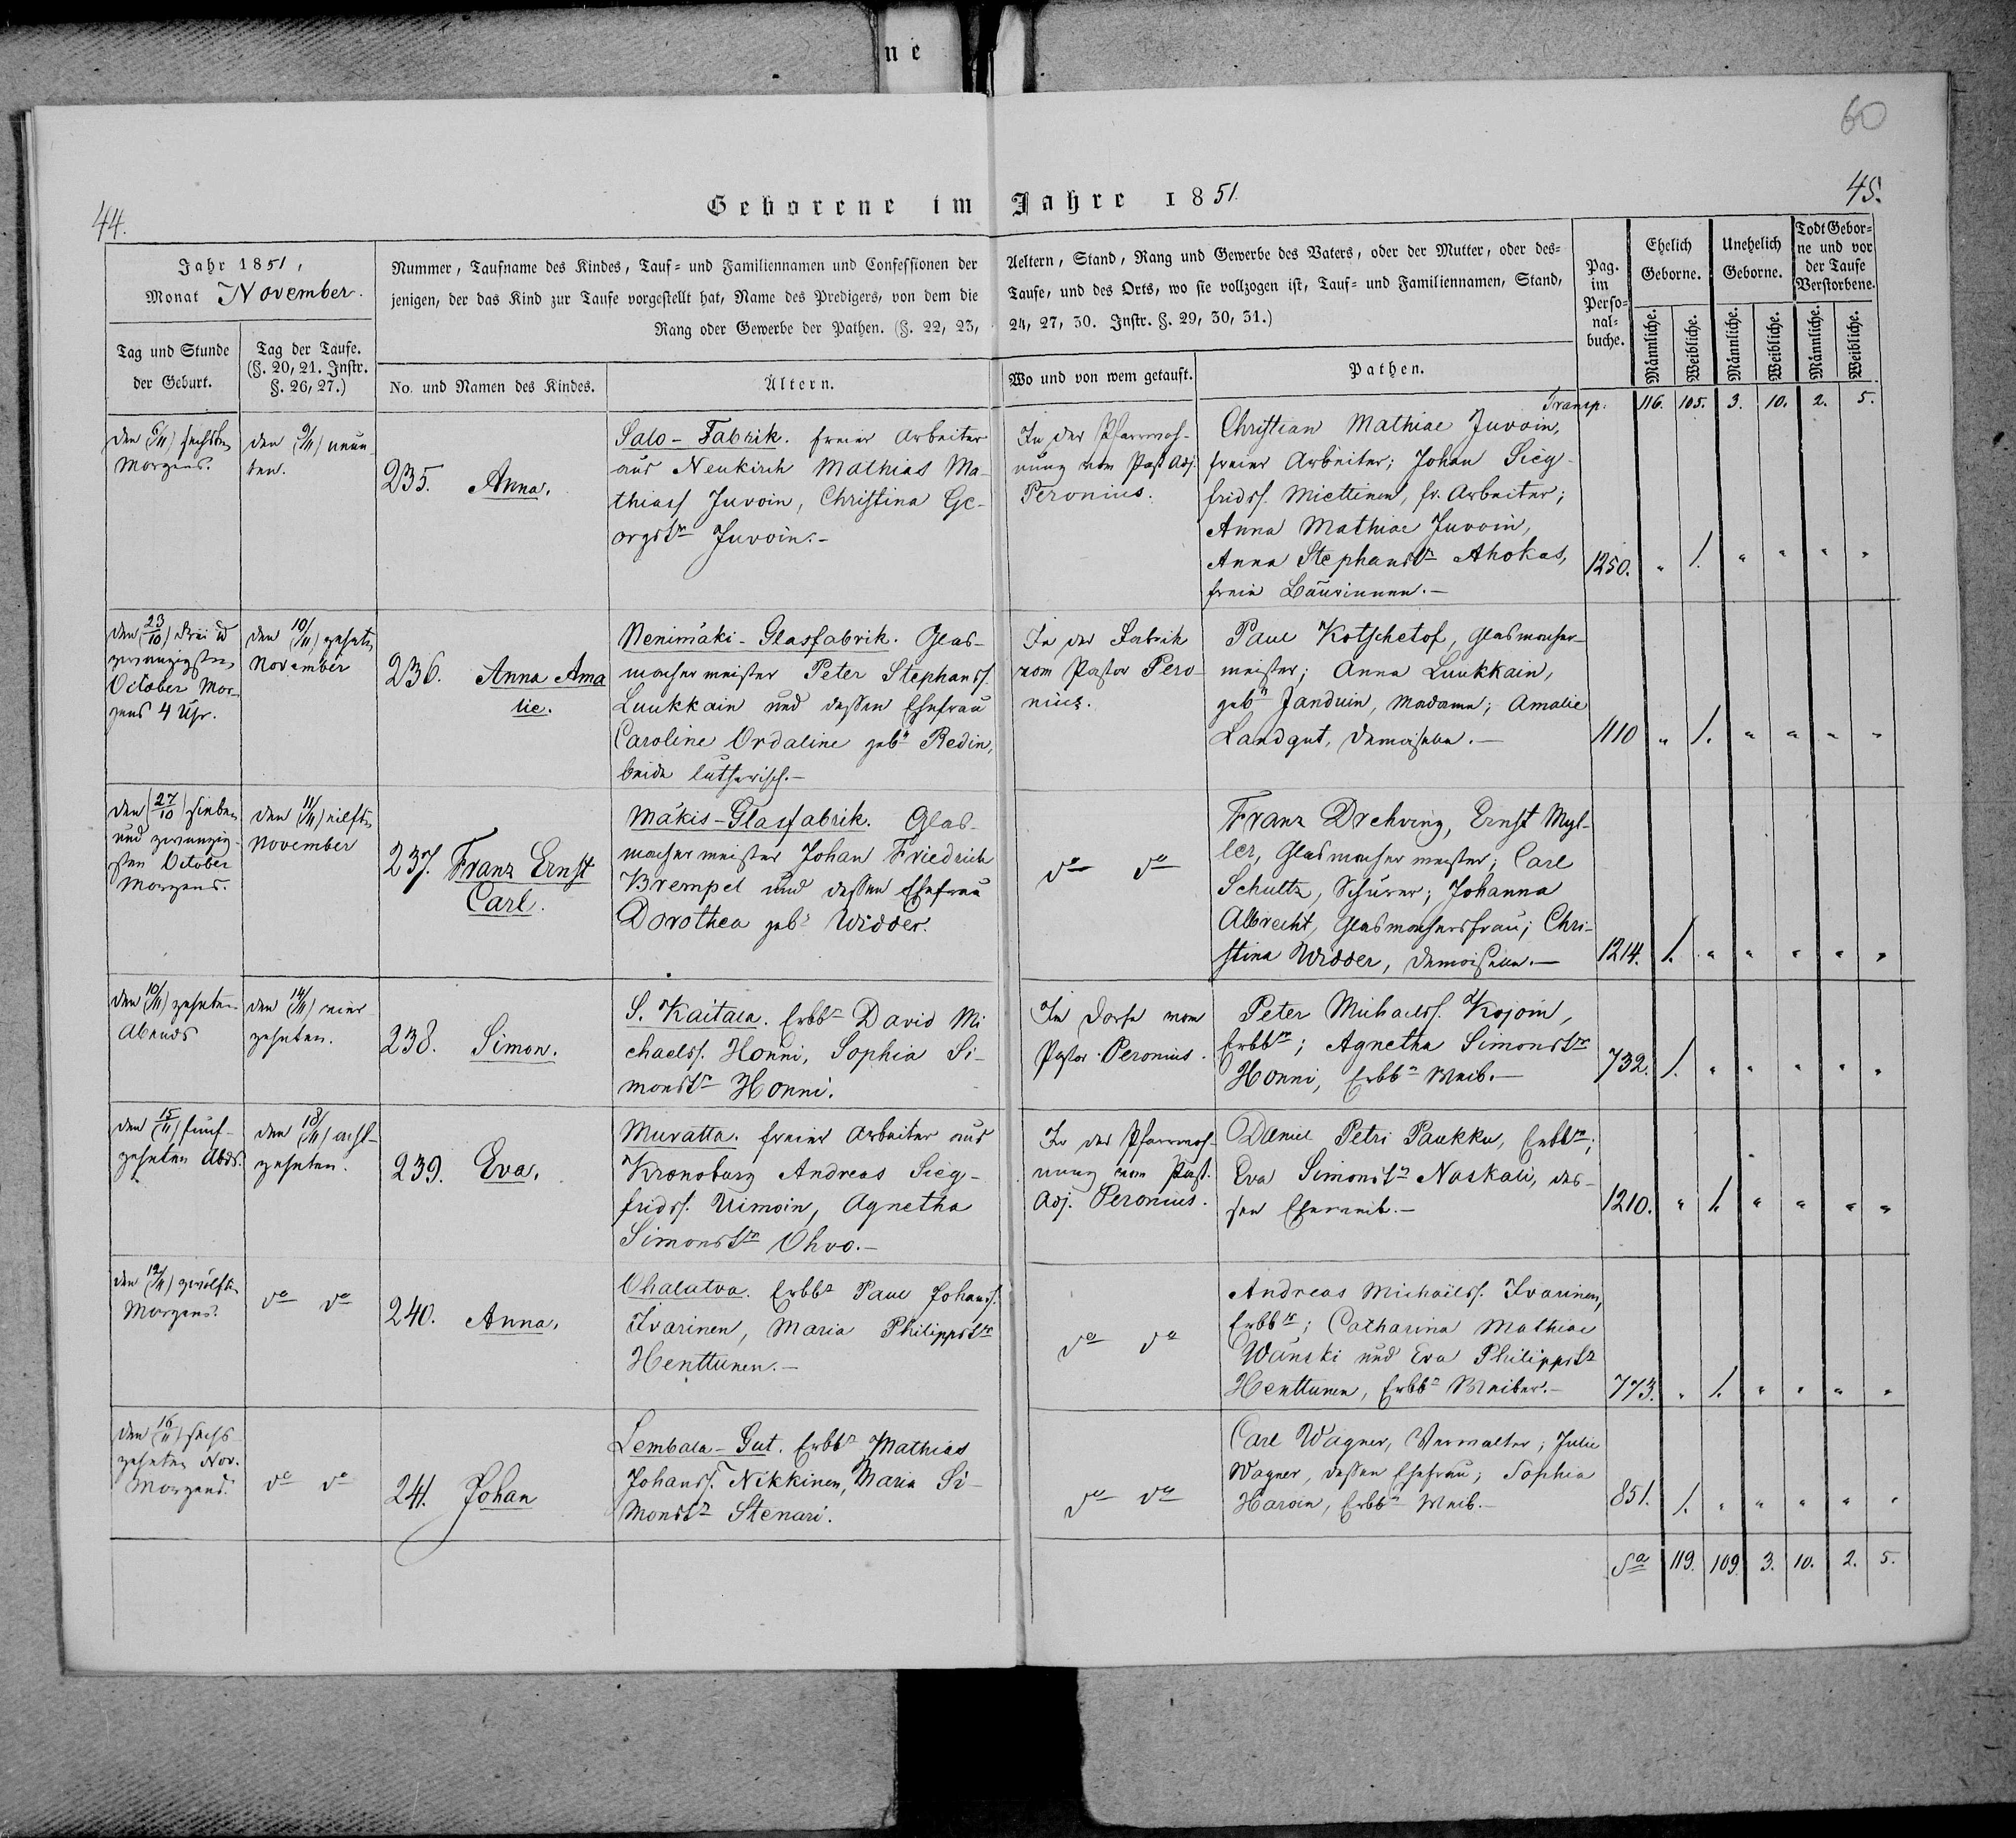 ne
60
44.
45.
Geborene im Jahre 1851.
Jahr 1851,
Monat November.
Nummer, Taufname des Kindes, Tauf- und Familiennamen und Confessionen der Aeltern, Stand, Rang und Gewerbe des Vaters, oder der Mutter, oder des-
jenigen, der das Kind zur Taufe vorgestellt hat, Name des Predigers, von dem die Taufe, und des Orts, wo sie vollzogen ist, Tauf- und Familiennamen, Stand,
Rang oder Gewerbe der Pathen. (§. 22, 23, 24, 27, 30. Instr. §. 29, 30, 31.)
Tag und Stunde
der Geburt.
Tag der Taufe.
(§. 20, 21. Instr.
§. 26, 27.)
No. und Namen des Kindes.
Ältern.
Wo und von wem getauft.
Pathen.
Pag.
im
Perso-
nal-
buche.
Ehelich
Geborne.
Unehelich
Geborne.
Todt Gebor-
ne und vor
der Taufe
Verstorbene.
Männliche.
Weibliche.
Männliche.
Weibliche.
Männliche.
Weibliche.
Transp: 116. 105. 3. 10. 2. 5.
den (6/11) sechsten
Morgens.
den (9/11) neun
ten.
235. Anna.
Salo-Fabrik. freier Arbeiter
aus Neukirch Mathias Ma-
thiass Juvoin, Christina Ge-
orgstr Juvoin.-
In der Pfarrwoh-
nung vom Past. Adj.
Peronius.
Christian Mathiae Juvoin,
freier Arbeiter; Johan Sieg-
fridss. Miettinen, fr. Arbeiter;
Anna Mathiae Juvoin,
Anna Stephanstr Ahokas,
freie Bäurinnen.-
1250. " 1. " " " "
den (23/10) drei u
zwanzigsten
October Mor-
gens 4 Uhr.
den (10/11) zehnten
November
236. Anna Ama
lie.
Nenimäki-Glasfabrik. Glas-
machermeister Peter Stephanss.
Luukkain und dessen Ehefrau
Caroline Ordaline gebn Redin,
beide lutherisch.-
In der Fabrik
vom Pastor Pero-
nius.
Paul Kotschetof, Glasmacher-
meister; Anna Luukkain,
gebn Janduin, Madame; Amalie
Landgut, Demoiselle.-
1110 " 1. " " " "
den (27/10) sieben
und zwanzig-
sten October
Morgens.
den (11/11) eilften
November
237. Franz Ernst
Carl.
Mäkis-Glasfabrik. Glas-
machermeister Johan Friedrich
Brempel und dessen Ehefrau
Dorothea gebr Widder.
do do
Franz Drehving, Ernst Myl-
ler, Glasmachermeister; Carl
Schultz, Schürer; Johanna
Albrecht, Glasmachersfrau; Chri-
stina Widder, Demoiselle.-
1214. 1. " " " " "
den (10/11) zehnten
Abends
den (14/11) vier
zehnten.
238. Simon.
S. Kaitala. Erbbr David Mi
chaelss. Honni, Sophia Si-
monstr Honni.
Im Dorfe vom
Pastor Peronius.
Peter Michaelss. Kojoin,
Erbbr; Agnetha Simonstr
Honni, Erbbr Weib.-
732. 1. " " " " "
den (15/11) fünf-
zehnten Abds.
den (18/11) acht-
zehnten.
239. Eva.
Muratta. freier Arbeiter aus
Kronoburg Andreas Sieg-
fridss. Uimoin, Agnetha
Simonstr Ohvo.-
In der Pfarrwoh-
nung vom Past.
Adj. Peronius.
Daniel Petri Paukku, Erbbr;
Eva Simonstr Naskali, des-
sen Eheweib.-
1210. " 1. " " " "
den (12/11) zwölften
Morgens.
do do
240. Anna.
Ohalatva. Erbbr Paul Johanss.
Ivarinen, Maria Philippstr
Henttunen.-
do do
Andreas Michaelss. Ivarinen,
Erbbr; Catharina Mathiae
Wänski und Eva Philippstr
Henttunen, Erbbr Weiber.-
773. " 1. " " " "
den (16/11) sechs
zehnten Nov.
Morgens.
do do
241. Johan
Lembala-Gut. Erbbr Mathias
Johanss. Nikkinen, Maria Si-
monstr Stenari.
do do
Carl Wagner, Verwalter; Julie
Wagner, dessen Ehefrau; Sophia
Haroin, Erbbr Weib.-
851. 1. " " " " "
Sa 119. 109. 3. 10. 2. 5.